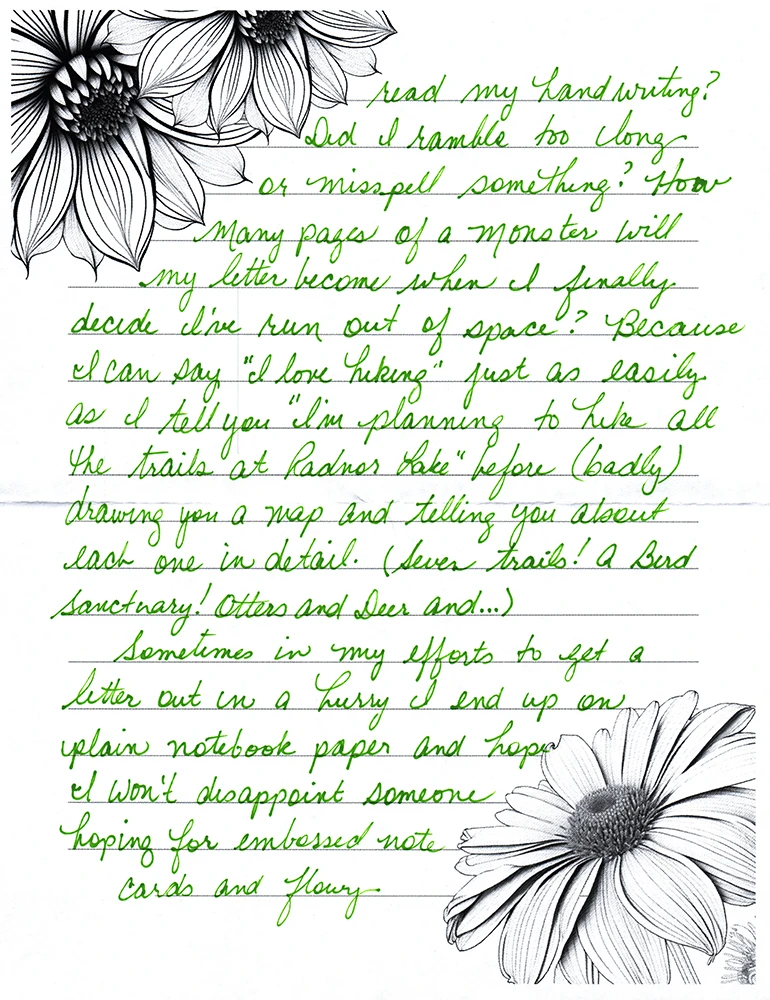 read my handwriting?
Did I ramble too long
or misspell something? How
Many pages of a Monster will
my letter become when I finally
decide I've run out of space? Because
I can say "I love hiking" just as easily
as I tell you "I'm planning to hike all
the trails at Radnor Lake" before (badly)
drawing you a map and telling you about
each one in detail. (Seven trails! A Bird
Sanctuary! Otters and Deer and...)
Sometimes in my efforts to get a
letter out in a hurry I end up on
plain notebook paper and hope
I won't disappoint someone
hoping for embossed note
cards and flowy